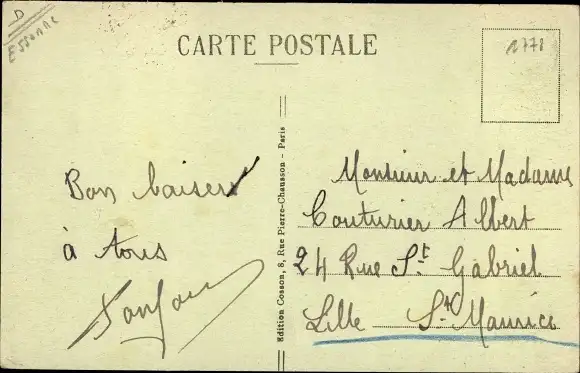 D
ESSONNE
CARTE POSTALE
1778
Bon baisers
à tous
Edition Cosson, 8, Rue Pierre-Chausson - Paris
Monsieur et Madame
Couturier Albert
24 Rue St Gabriel
Lille St Maurice